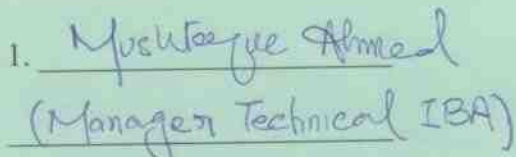 1. Mushtaque Ahmed
(Manager Technical IBA)